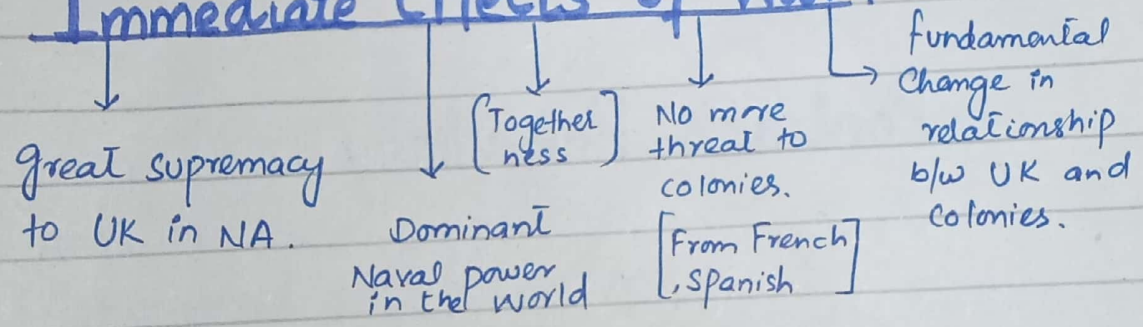 Immediate Effects of
great supremacy
to UK in NA.
Dominant
Naval power
in the world
[Together
ness]
No more
threat to
colonies.
[From French
, Spanish]
fundamental
Change in
relationship
b/w UK and
Colonies.